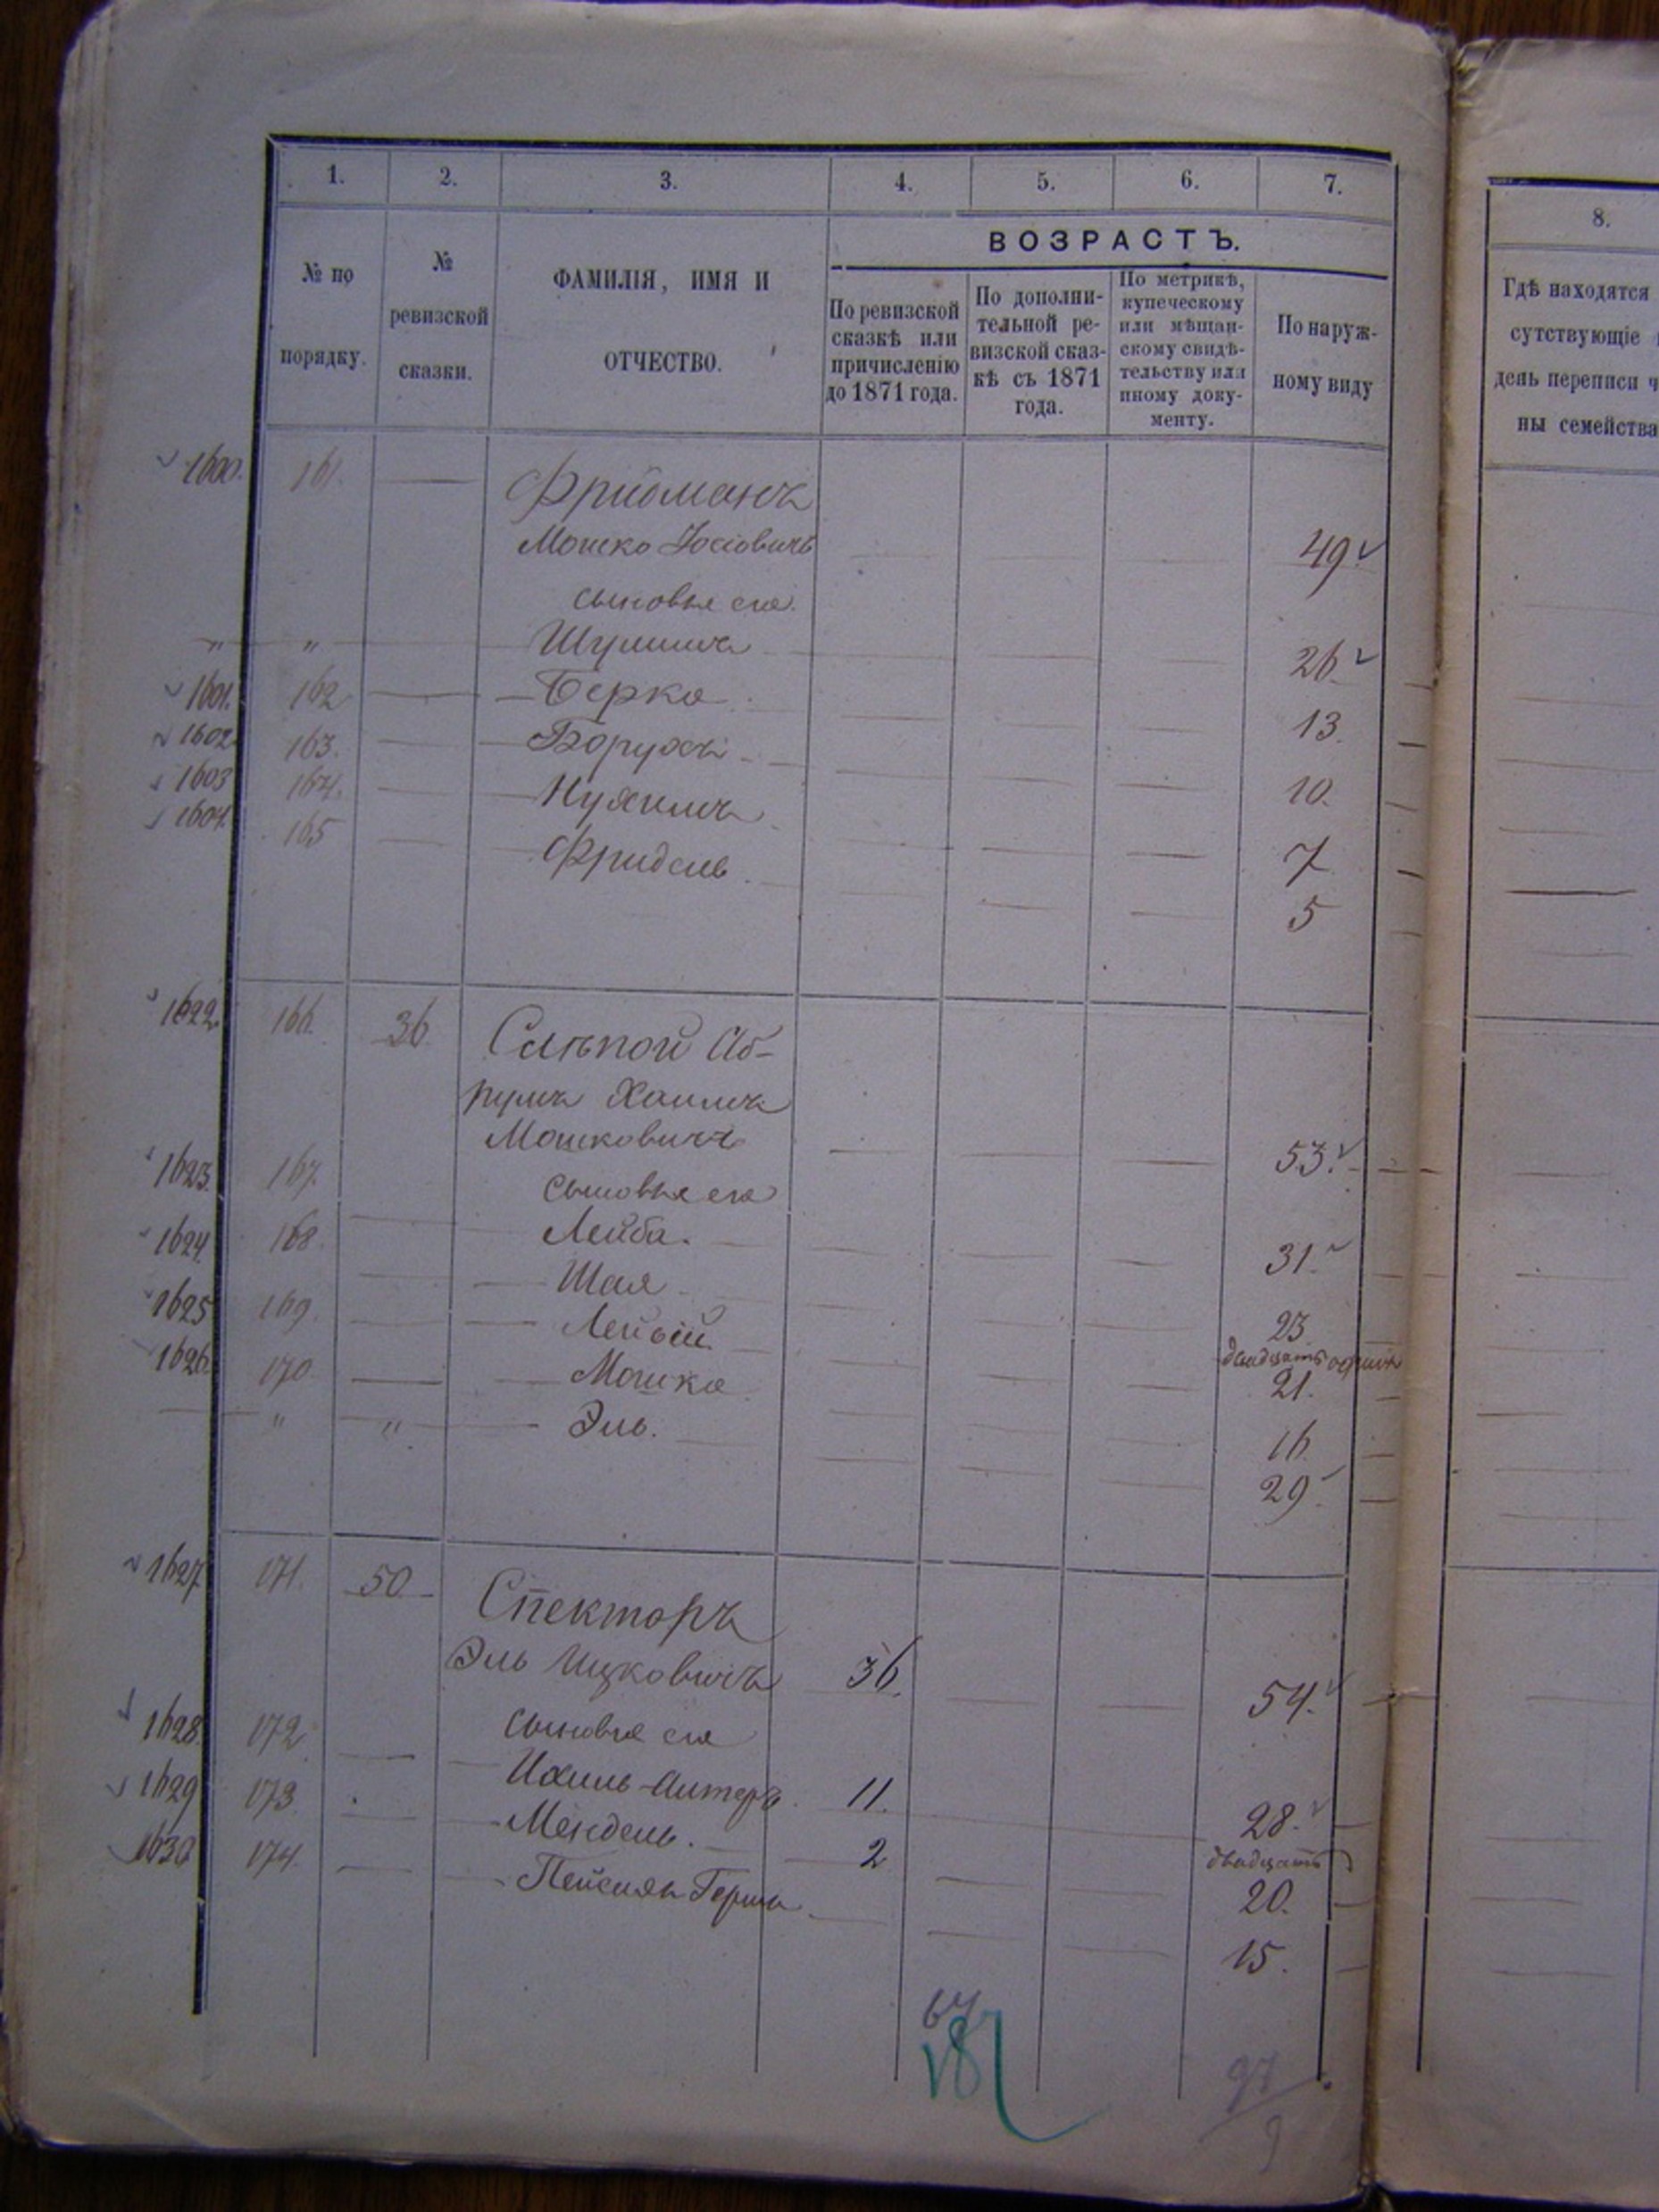 1. 2. 3. 4. 5. 6. 7.
ВОЗРАСТЪ.
№ по порядку.
№ ревизской сказки.
ФАМИЛІЯ, ИМЯ И ОТЧЕСТВО.
По ревизской сказкѣ или причисленію до 1871 года.
По дополнительной ревизской сказкѣ съ 1871 года.
По метрикѣ, купеческому или мѣщанскому свидѣтельству или иному документу.
По наружному виду
1600. 161. Фридманъ
Мошко Іосіовичъ 49.
сыновья его
" " Шулимъ 26
1601. 162 Берко 13.
1602 163. Борухъ 10.
1603 164. Нухимъ 7
1604. 165 Фридель 5
1622. 166. 36 Слѣпой Аб-
румъ Хаимъ
Мошковичъ 53.
1623. 167. сыновья его
Лейба. 31.
1624. 168. Шая 23
двадцать одинъ
1625 169. 21.
1626. 170. Мошко 16
" " Эль. 29
1627 171. 50 Спекторъ
Эль Ицковичъ 36. 54.
сыновья его
1628. 172. Ихиль-Алтеръ 11. 28.
двадцать
1629 173. Мендель. 2 20.
1630 174. Пейсахъ Герш 15.
67
181
97
9
8.
Гдѣ находятся
сутствующіе
день переписи ч
ны семейства